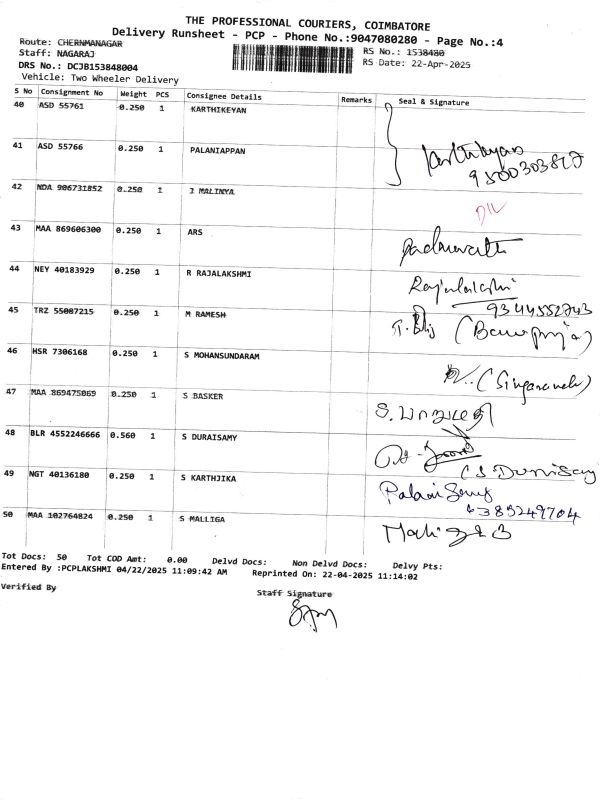 THE PROFESSIONAL COURIERS, COIMBATORE
Delivery Runsheet - PCP - Phone No.:9047080280 - Page No.:4
Route: CHERNMANAGAR
RS No.: 1538480
Staff: NAGARAJ
RS Date: 22-Apr-2025
DRS No.: DCJB153848004
Vehicle: Two Wheeler Delivery
S No Consignment No Weight PCS Consignee Details Remarks Seal & Signature
40 ASD 55761 0.250 1 KARTHIKEYAN
41 ASD 55766 0.250 1 PALANIAPPAN
9500303817
42 NDA 906731852 0.250 1 J MALINYA
DIL
43 MAA 869606300 0.250 1 ARS
44 NEY 40183929 0.250 1 R RAJALAKSHMI
Rajalakshmi
9344552743
45 TRZ 55087215 0.250 1 M RAMESH
46 HSR 7306168 0.250 1 S MOHANSUNDARAM
47 MAA 869475069 0.250 1 S BASKER
48 BLR 4552246666 0.560 1 S DURAISAMY
(S Duraisamy
49 NGT 40136180 0.250 1 S KARTHJIKA
Palanisamy
6385249704
50 MAA 102764824 0.250 1 S MALLIGA
Tot Docs: 50 Tot COD Amt: 0.00 Delvd Docs: Non Delvd Docs: Delvy Pts:
Entered By :PCPLAKSHMI 04/22/2025 11:09:42 AM Reprinted On: 22-04-2025 11:14:02
Verified By
Staff Signature